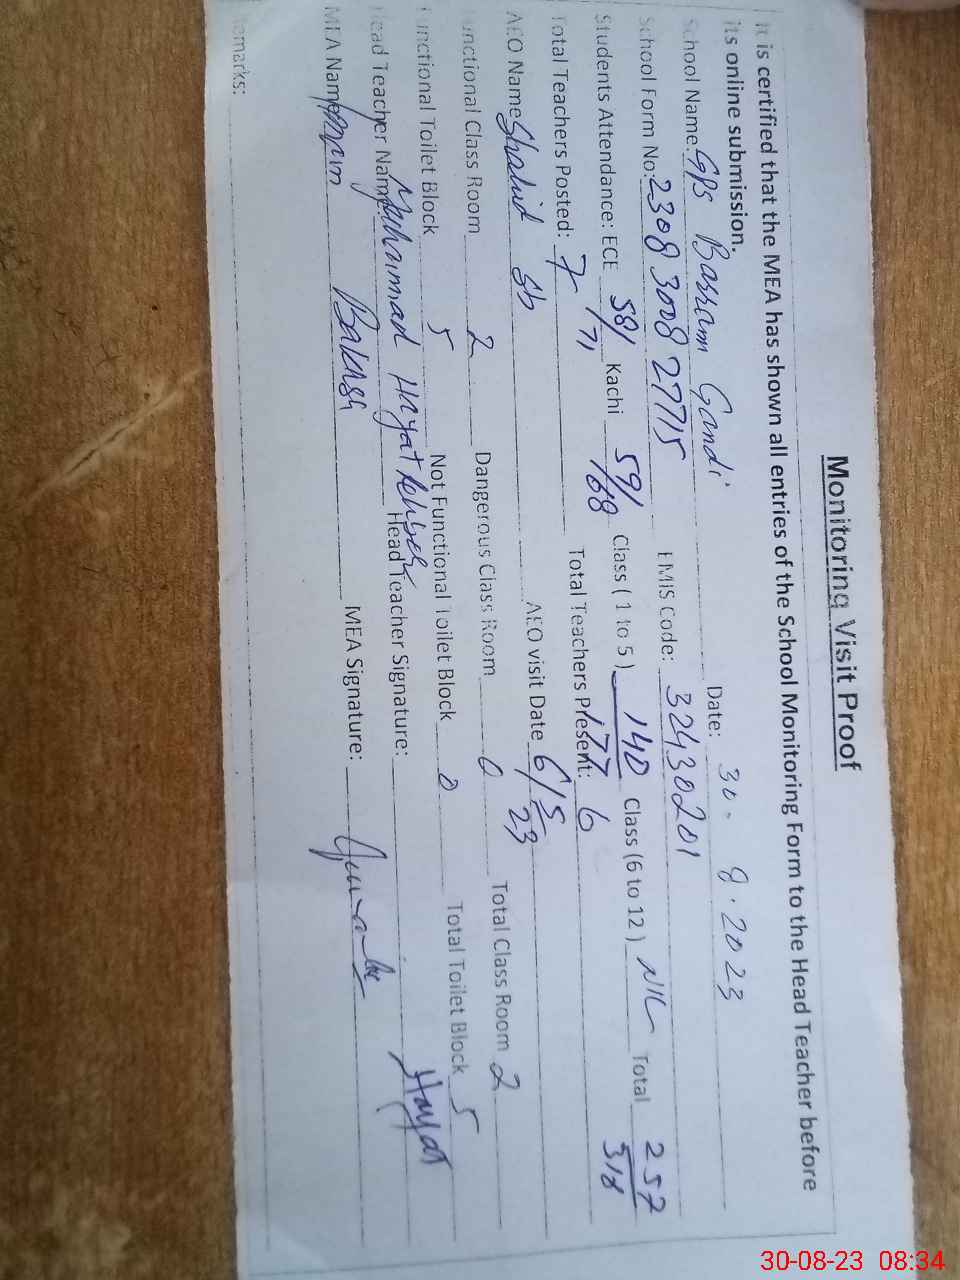 Monitoring Visit Proof
It is certified that the MEA has shown all entries of the School Monitoring Form to the Head Teacher before
its online submission.
School Name: GPS Barram Gandi Date: 30. 8. 2023
School Form No: 2308 3008 27715 EMIS Code: 32430201
Students Attendance: ECE 58/71 Kachi 59/68 Class ( 1 to 5 ) 140/177 Class (6 to 12 ) NIL Total 257/318
Total Teachers Posted: 7 Total Teachers Present: 6
AEO Name Shahid sb AEO visit Date 6/5/23
unctional Class Room 2 Dangerous Class Room 0 Total Class Room 2
unctional Toilet Block 5 Not Functional Toilet Block 0 Total Toilet Block 5
Head Teacher Name: Muhammad Hayat Head Teacher Signature: Hayat
MEA Name: Bakhsh MEA Signature:
emarks:
30-08-23 08:34